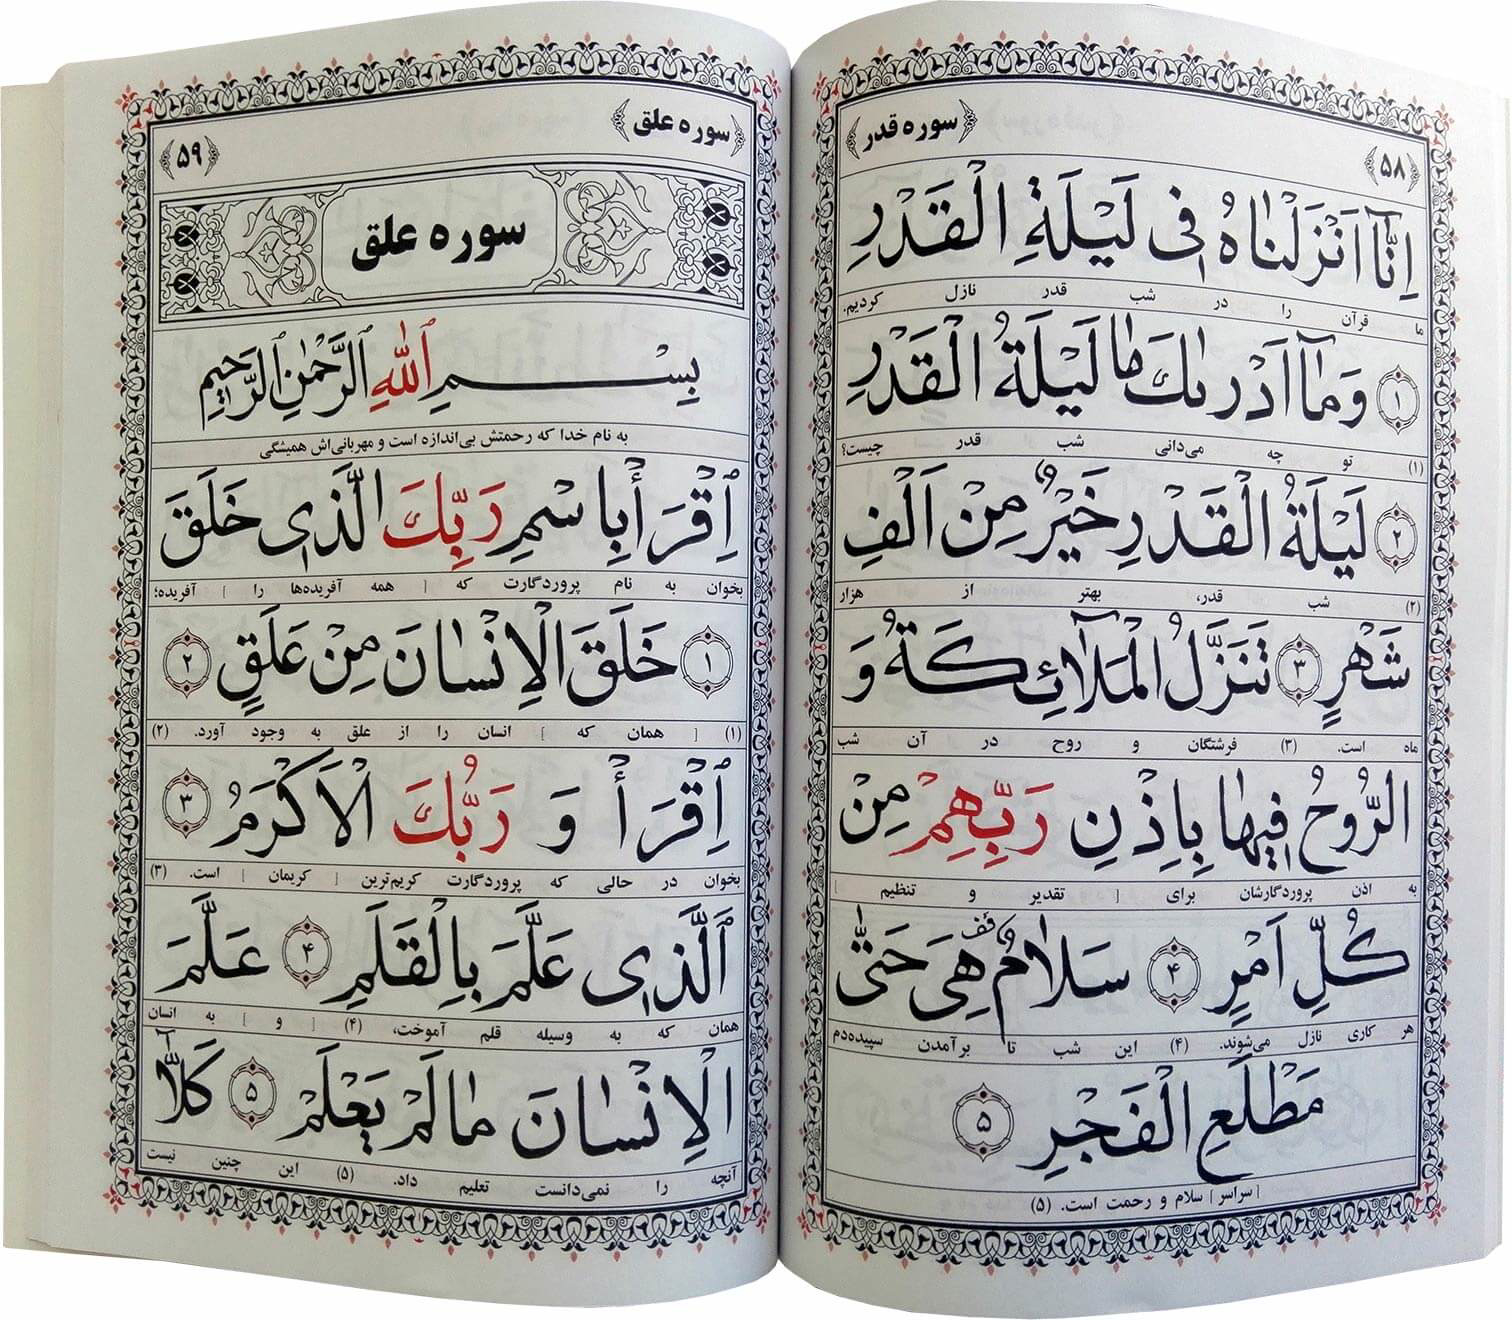 سوره قدر
۵۸
اِنّٰٓا اَنْزَلْنٰاهُ فِی لَیْلَةِ الْقَدْرِ
ما قرآن را در شب قدر نازل کردیم.
۱ وَ مٰٓا اَدْرٰیكَ مٰا لَیْلَةُ الْقَدْرِ
(۱) تو چه می‌دانی شب قدر چیست؟
۲ لَیْلَةُ الْقَدْرِ خَیْرٌ مِنْ اَلْفِ
(۲) شب قدر، بهتر از هزار
شَهْرٍ ۳ تَنَزَّلُ الْمَلٰٓائِكَةُ وَ
ماه است. (۳) فرشتگان و روح در آن شب
الرُّوحُ فِیهٰا بِاِذْنِ رَبِّهِمْ مِنْ
به اذن پروردگارشان برای [ تقدیر و تنظیم ]
كُلِّ اَمْرٍ ۴ سَلٰامٌ قف هِیَ حَتّٰی
هر کاری نازل می‌شوند. (۴) این شب تا برآمدن سپیده‌دم
مَطْلَعِ الْفَجْرِ ۵
[ سراسر ] سلام و رحمت است. (۵)
سوره علق
۵۹
سوره علق
بِسْمِ ٱللّٰهِ ٱلرَّحْمٰنِ ٱلرَّحِیمِ
به نام خدا که رحمتش بی‌اندازه است و مهربانی‌اش همیشگی
اِقْرَأْ بِاسْمِ رَبِّكَ الَّذِی خَلَقَ
بخوان به نام پروردگارت که [ همه آفریده‌ها را ] آفریده؛
۱ خَلَقَ الْاِنْسٰانَ مِنْ عَلَقٍ ۲
(۱) [ همان که ] انسان را از علق به وجود آورد. (۲)
اِقْرَأْ وَ رَبُّكَ الْاَكْرَمُ ۳
بخوان در حالی که پروردگارت کریم‌ترین [ کریمان ] است. (۳)
اَلَّذِی عَلَّمَ بِالْقَلَمِ ۴ عَلَّمَ
همان که به وسیله قلم آموخت، (۴) [ و ] به انسان
الْاِنْسٰانَ مٰا لَمْ یَعْلَمْ ۵ كَلّٰآ
آنچه را نمی‌دانست تعلیم داد. (۵) این چنین نیست